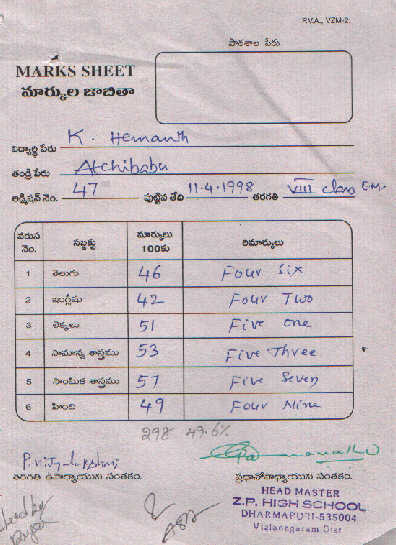 RVM., VZM-2.
పాఠశాల పేరు
MARKS SHEET
మార్కుల జాబితా
విద్యార్థి పేరు K. Hemanth
తండ్రి పేరు Atchibabu
అడ్మిషన్ నెం. 47 పుట్టిన తేది 11-4-1998 తరగతి VIII class E.M.
వరుస నెం. సబ్జెక్టు మార్కులు 100కు రిమార్కులు
1 తెలుగు 46 Four Six
2 ఇంగ్లీషు 42 Four Two
3 లెక్కలు 51 Five one
4 సామాన్య శాస్త్రము 53 Five Three
5 సాంఘిక శాస్త్రము 57 Five Seven
6 హింది 49 Four Nine
298 49.6%
తరగతి ఉపాధ్యాయుని సంతకం. ప్రధానోపాధ్యాయుని సంతకం.
HEAD MASTER
Z.P. HIGH SCHOOL
DHARMAPURI-535004
Vizianagaram Dist